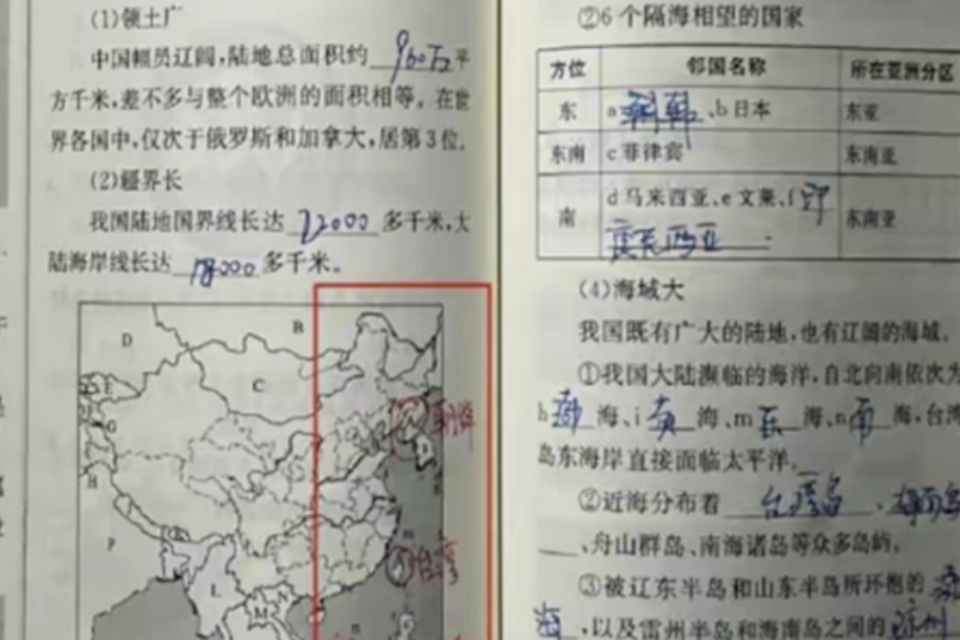 (1)领土广
中国幅员辽阔,陆地总面积约 960万 平
方千米,差不多与整个欧洲的面积相等。在世
界各国中,仅次于俄罗斯和加拿大,居第3位。
(2)疆界长
我国陆地国界线长达 22000 多千米,大
陆海岸线长达 18000 多千米。
D
B
C
E
G
H
P
L
M
m
n
朝鲜
台湾
②6个隔海相望的国家
方位 邻国名称 所在亚洲分区
东 a 韩、b日本 东亚
东南 c菲律宾 东南亚
南 d马来西亚、e文莱、f 印
度尼西亚 东南亚
(4)海域大
我国既有广大的陆地,也有辽阔的海域。
①我国大陆濒临的海洋,自北向南依次为
h 渤 海、i 黄 海、m 东 海、n 南 海,台湾
岛东海岸直接面临太平洋。
②近海分布着 台湾岛 、海南岛
、舟山群岛、南海诸岛等众多岛屿。
③被辽东半岛和山东半岛所环抱的 渤
海 ,以及雷州半岛和海南岛之间的 琼州